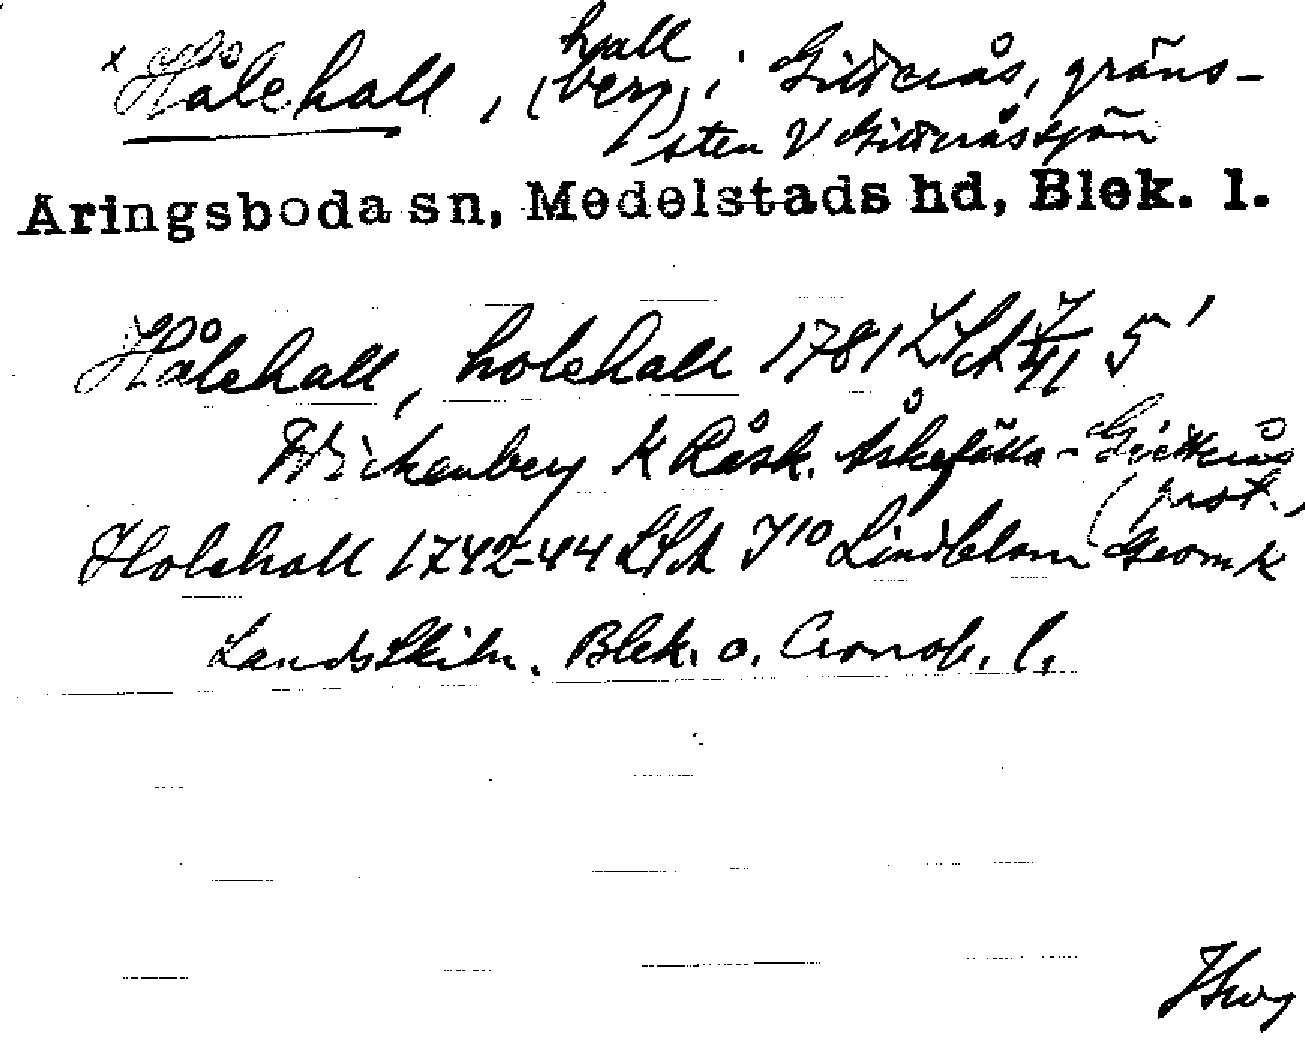 x Hålehall, (hall berg) i Gitterås, gräns-
sten V Gitteråssjön
Aringsboda sn, Medelstads hd, Blek. l.
Hålehall, holehall 1781 LSA 7/41 5'
Wickenberg K Råsk. Askefälla - Gitterås
(prot.,
Holehall 1742-44 LSA J10 Lindblom Geom K
Landskibn. Blek. o. Cronob. l.